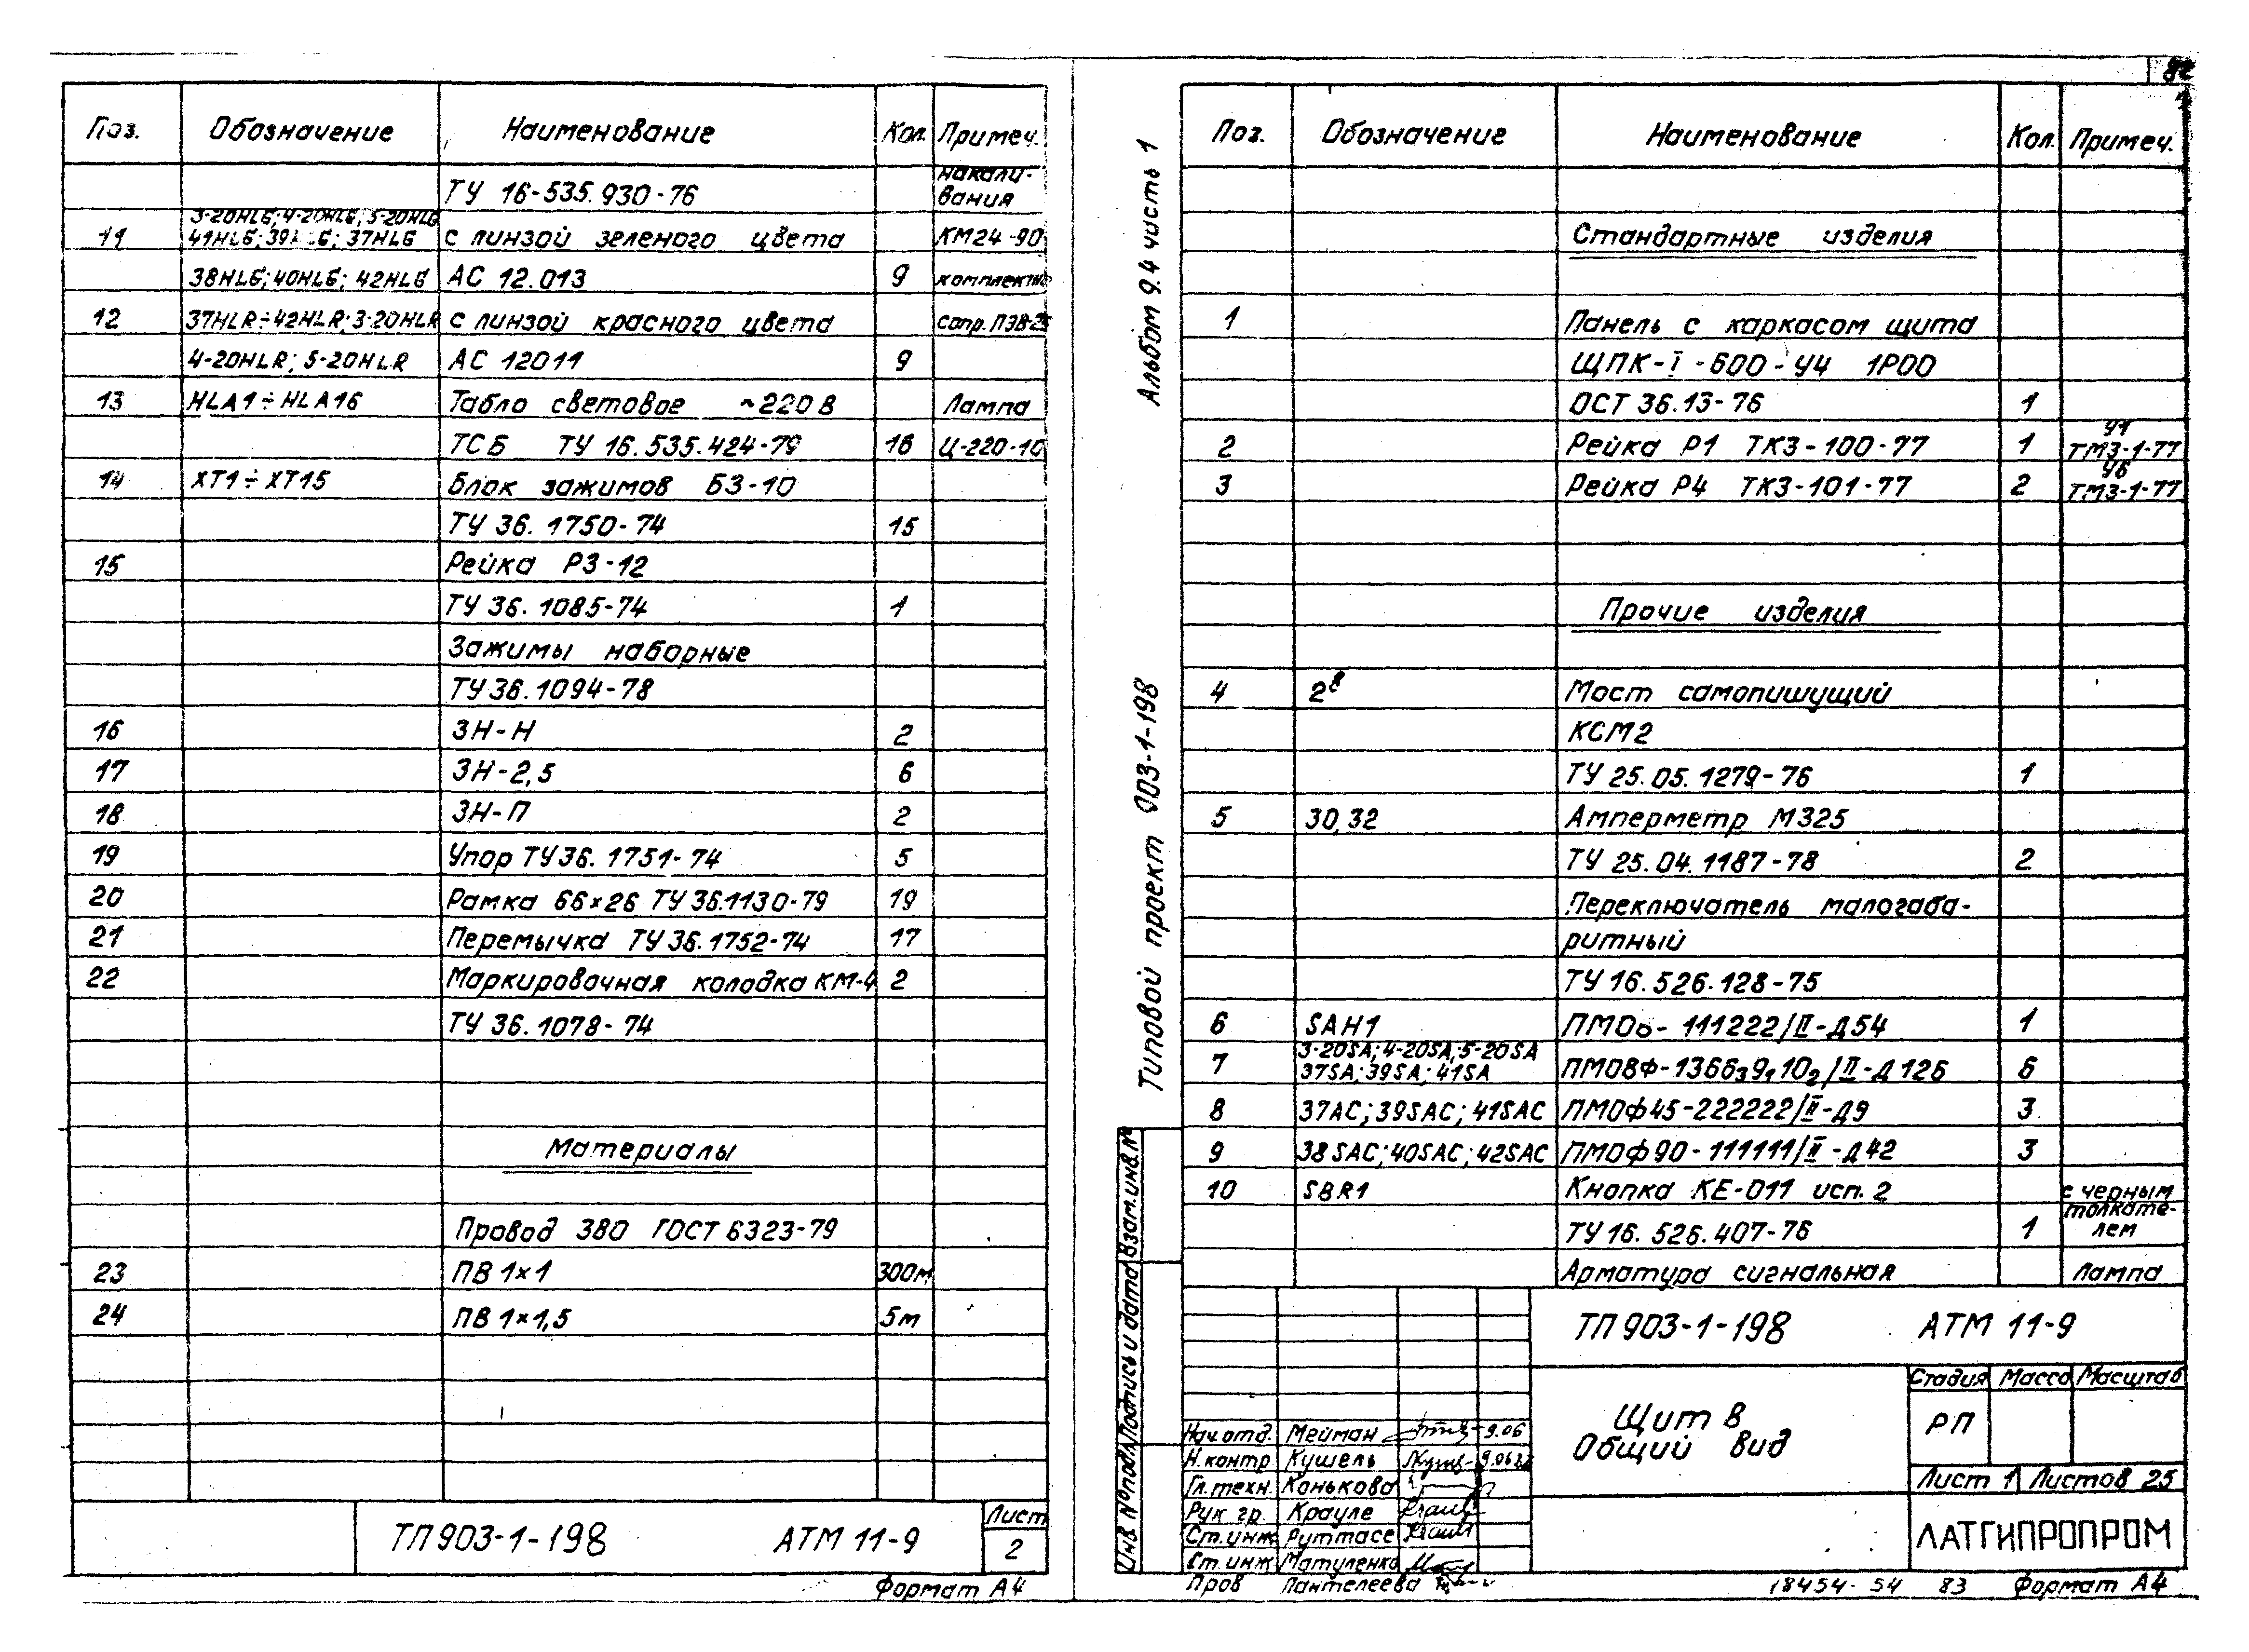 Поз. Обозначение Наименование Кол. Примеч.
ТУ 16-535.930-76 накали-
вания
3-20HLG; 4-20HLG; 5-20HLG
11 41HLG; 37HLG с линзой зеленого цвета КМ24-90
38HLG; 40HLG; 42HLG АС 12.013 9 комплектно
12 37HLR÷42HLR; 3-20HLR с линзой красного цвета сопр. ПЭВ-25
4-20HLR; 5-20HLR АС 12011 9
13 HLA1÷HLA16 Табло световое ~220В Лампа
ТСБ ТУ 16.535.424-79 16 Ц-220-10
14 XT1÷XT15 Блок зажимов БЗ-10
ТУ 36.1750-74 15
15 Рейка РЗ-12
ТУ 36.1085-74 1
Зажимы наборные
ТУ 36.1094-78
16 ЗН-Н 2
17 ЗН-2,5 6
18 ЗН-П 2
19 Упор ТУ 36.1751-74 5
20 Рамка 66×26 ТУ 36.1130-79 19
21 Перемычка ТУ 36.1752-74 17
22 Маркировочная колодка КМ-4 2
ТУ 36.1078-74
Материалы
Провод 380 ГОСТ 6323-79
23 ПВ 1×1 300м
24 ПВ 1×1,5 5м
ТП 903-1-198 АТМ 11-9 Лист
2
Формат А4
82
Альбом 9.4 часть 1
Типовой проект 903-1-198
Инв. № подл. Подпись и дата Взам. инв. №
Поз. Обозначение Наименование Кол. Примеч.
Стандартные изделия
1 Панель с каркасом щита
ЩПК-I-600-У4 1Р00
ОСТ 36.13-76 1
2 Рейка Р1 ТК3-100-77 1 У1
ТМ3-1-77
3 Рейка Р4 ТК3-101-77 2 У6
ТМ3-1-77
Прочие изделия
4 2⁸ Мост самопишущий
КСМ2
ТУ 25.05.1279-76 1
5 30,32 Амперметр М325
ТУ 25.04.1187-78 2
Переключатель малогаба-
ритный
ТУ 16.526.128-75
6 SAH1 111222/II-Д54 1
3-20SA; 4-20SA; 5-20SA
7 37SA; 39SA; 41SA ПМОВФ-1366₃9₁10₂/II-Д126 6
8 37AC; 39SAC; 41SAC ПМОФ45-222222/II-Д9 3
9 38SAC; 40SAC; 42SAC ПМОФ90-111111/II-Д42 3
10 SBR1 Кнопка КЕ-011 исп. 2 с черным
толкате-
ТУ 16.526.407-76 1 лем
Арматура сигнальная Лампа
ТП 903-1-198 АТМ 11-9
Щит 8
Общий вид
Стадия Масса Масштаб
РП
Лист 1 Листов 25
ЛАТГИПРОПРОМ
Нач. отд. Мейман 9.06
Н. контр Кушель 9.06
Гл. техн. Конькова
Рук гр. Крауле
Ст. инж Руттасе
Ст. инж Матуленко
Пров Пантелеева
18454-54 83 Формат А4